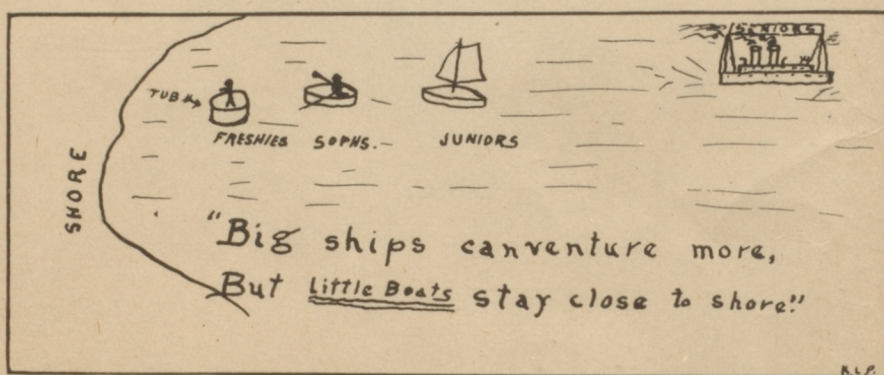 SENIORS
TUB
FRESHIES SOPHS.- JUNIORS
SHORE
"Big ships canventure more,
But Little Boats stay close to shore."
K.L.P.